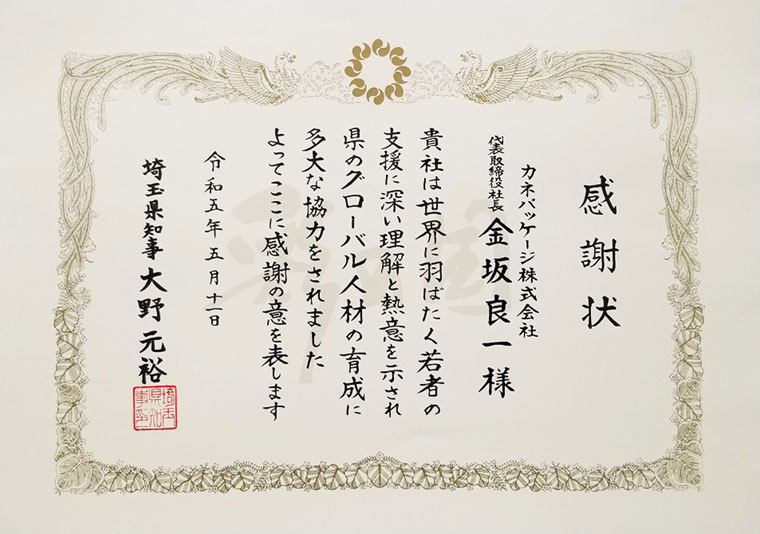 感謝状
カネパッケージ株式会社
代表取締役社長 金坂良一様
貴社は世界に羽ばたく若者の
支援に深い理解と熱意を示され
県のグローバル人材の育成に
多大な協力をされました
よってここに感謝の意を表します
令和五年五月十一日
埼玉県知事 大野元裕